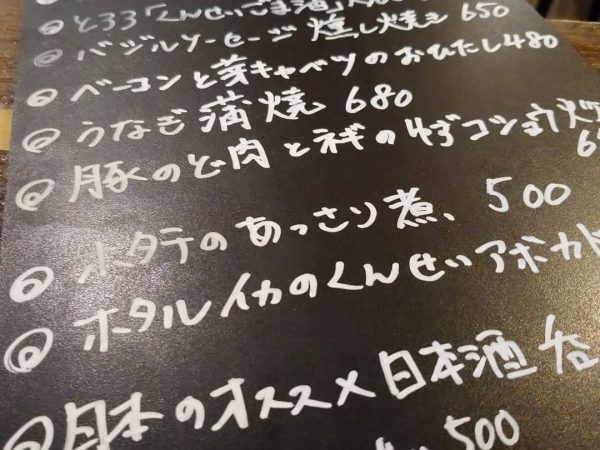 とろろ「くんせいごま酒」
バジルソーセージ 燻し焼き 650
ベーコンと芽キャベツのおひたし480
うなぎ蒲焼 680
豚のど肉とネギのゆずコショウ
ホタテのあっさり煮、500
ホタルイカのくんせいアボカド
日本のオススメ日本酒
500